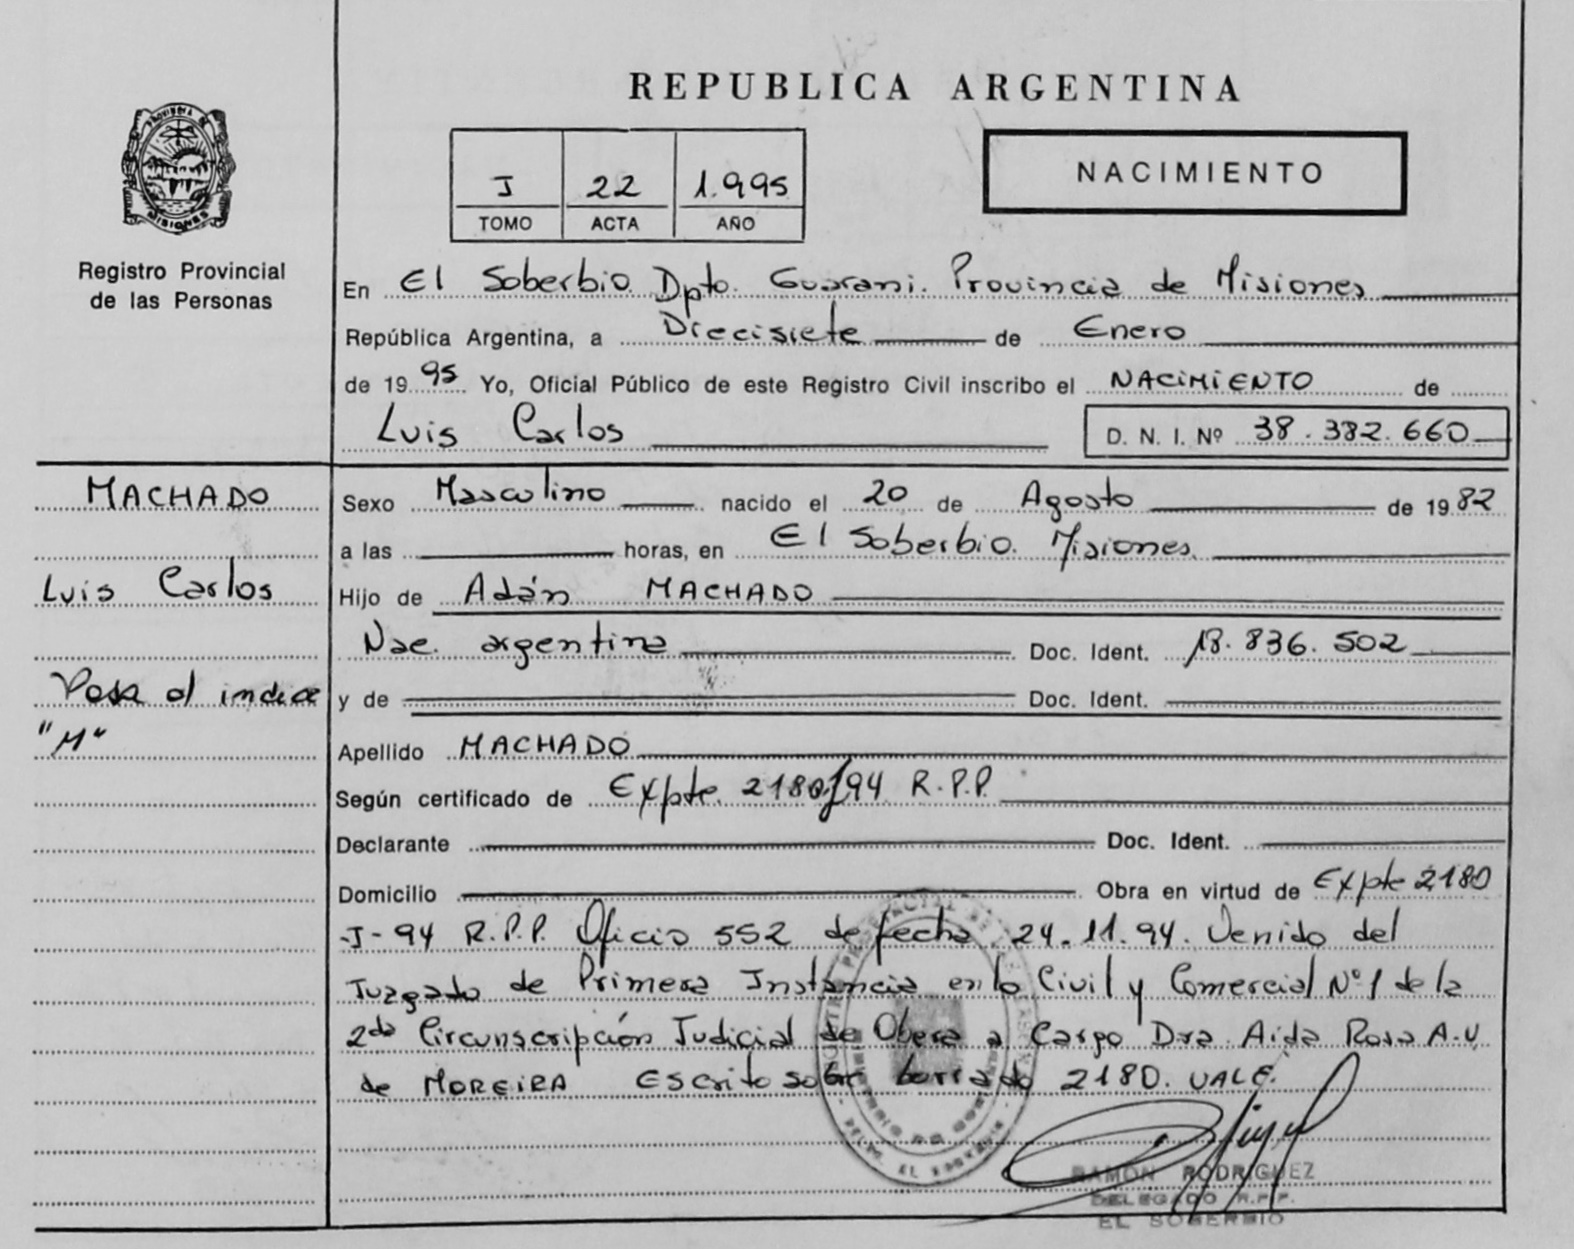 REPUBLICA ARGENTINA
PROVINCIA DE
MISIONES
J 22 1.995
TOMO ACTA AÑO
NACIMIENTO
Registro Provincial
de las Personas
En El Soberbio. Dpto. Guarani. Provincia de Misiones
República Argentina, a Diecisiete de Enero
de 1995 Yo, Oficial Público de este Registro Civil inscribo el NACIMIENTO de
Luis Carlos D. N. I. Nº 38.382.660
MACHADO
Luis Carlos
Pasa al indice
"M"
Sexo Masculino nacido el 20 de Agosto de 1982
a las horas, en El Soberbio. Misiones
Hijo de Adán MACHADO
Nac. argentina Doc. Ident. 18.836.502
y de Doc. Ident.
Apellido MACHADO
Según certificado de Expte. 2180/94 R.P.P.
Declarante Doc. Ident.
Domicilio Obra en virtud de Expte 2180
-J-94 R.P.P. Oficio 552 de fecha 24.11.94. Venido del
Juzgado de Primera Instancia en lo Civil y Comercial Nº1 de la
2da Circunscripción Judicial de Obera a Cargo Dra Aida Rosa A.V.
de MOREIRA Escrito sobre borrado 2180. VALE.
RAMON RODRIGUEZ
DELEGADO R.P.P.
EL SOBERBIO